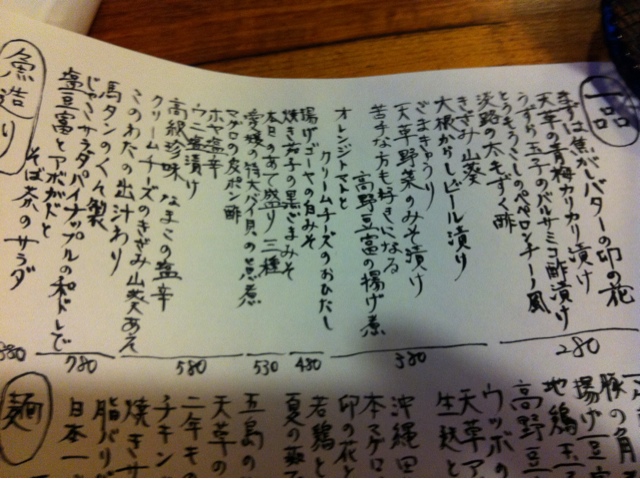 一品
まずは焦がしバターの卯の花
天草の青梅カリカリ漬け
うずら玉子のバルサミコ酢漬け
とうもろこしのペペロンチーノ風
淡路の太もずく酢
280
きざみ山葵
大根からしビール漬け
ごまきゅうり
天草野菜のみそ漬け
苦手な方も好きになる
高野豆富の揚げ煮
オレンジトマトと
クリームチーズのおひたし
380
揚げゴーヤの白みそ
焼き茄子の黒ごまみそ
480
本日のあて盛り 三種
愛媛の特大バイ貝の煮
530
マグロの皮ポン酢
ホヤ塩辛
ウニ塩漬け
高級珍味 なまこの塩辛
クリームチーズのきざみ山葵あえ
このわたの出汁わり
580
馬タンのくん製
じゃこサラダパイナップルの和ドレで
塩豆富とアボガドと
そば茶のサラダ
780
魚造り
豚の角煮
揚げ豆富
地鶏玉子
高野豆
ウッボの
天草ア
生麩と
沖縄田
本マグロ
卯の花と
若鶏と
夏の
五島の
天草の
二年もの
チキン
焼きサ
脂バリ
日本一
麺